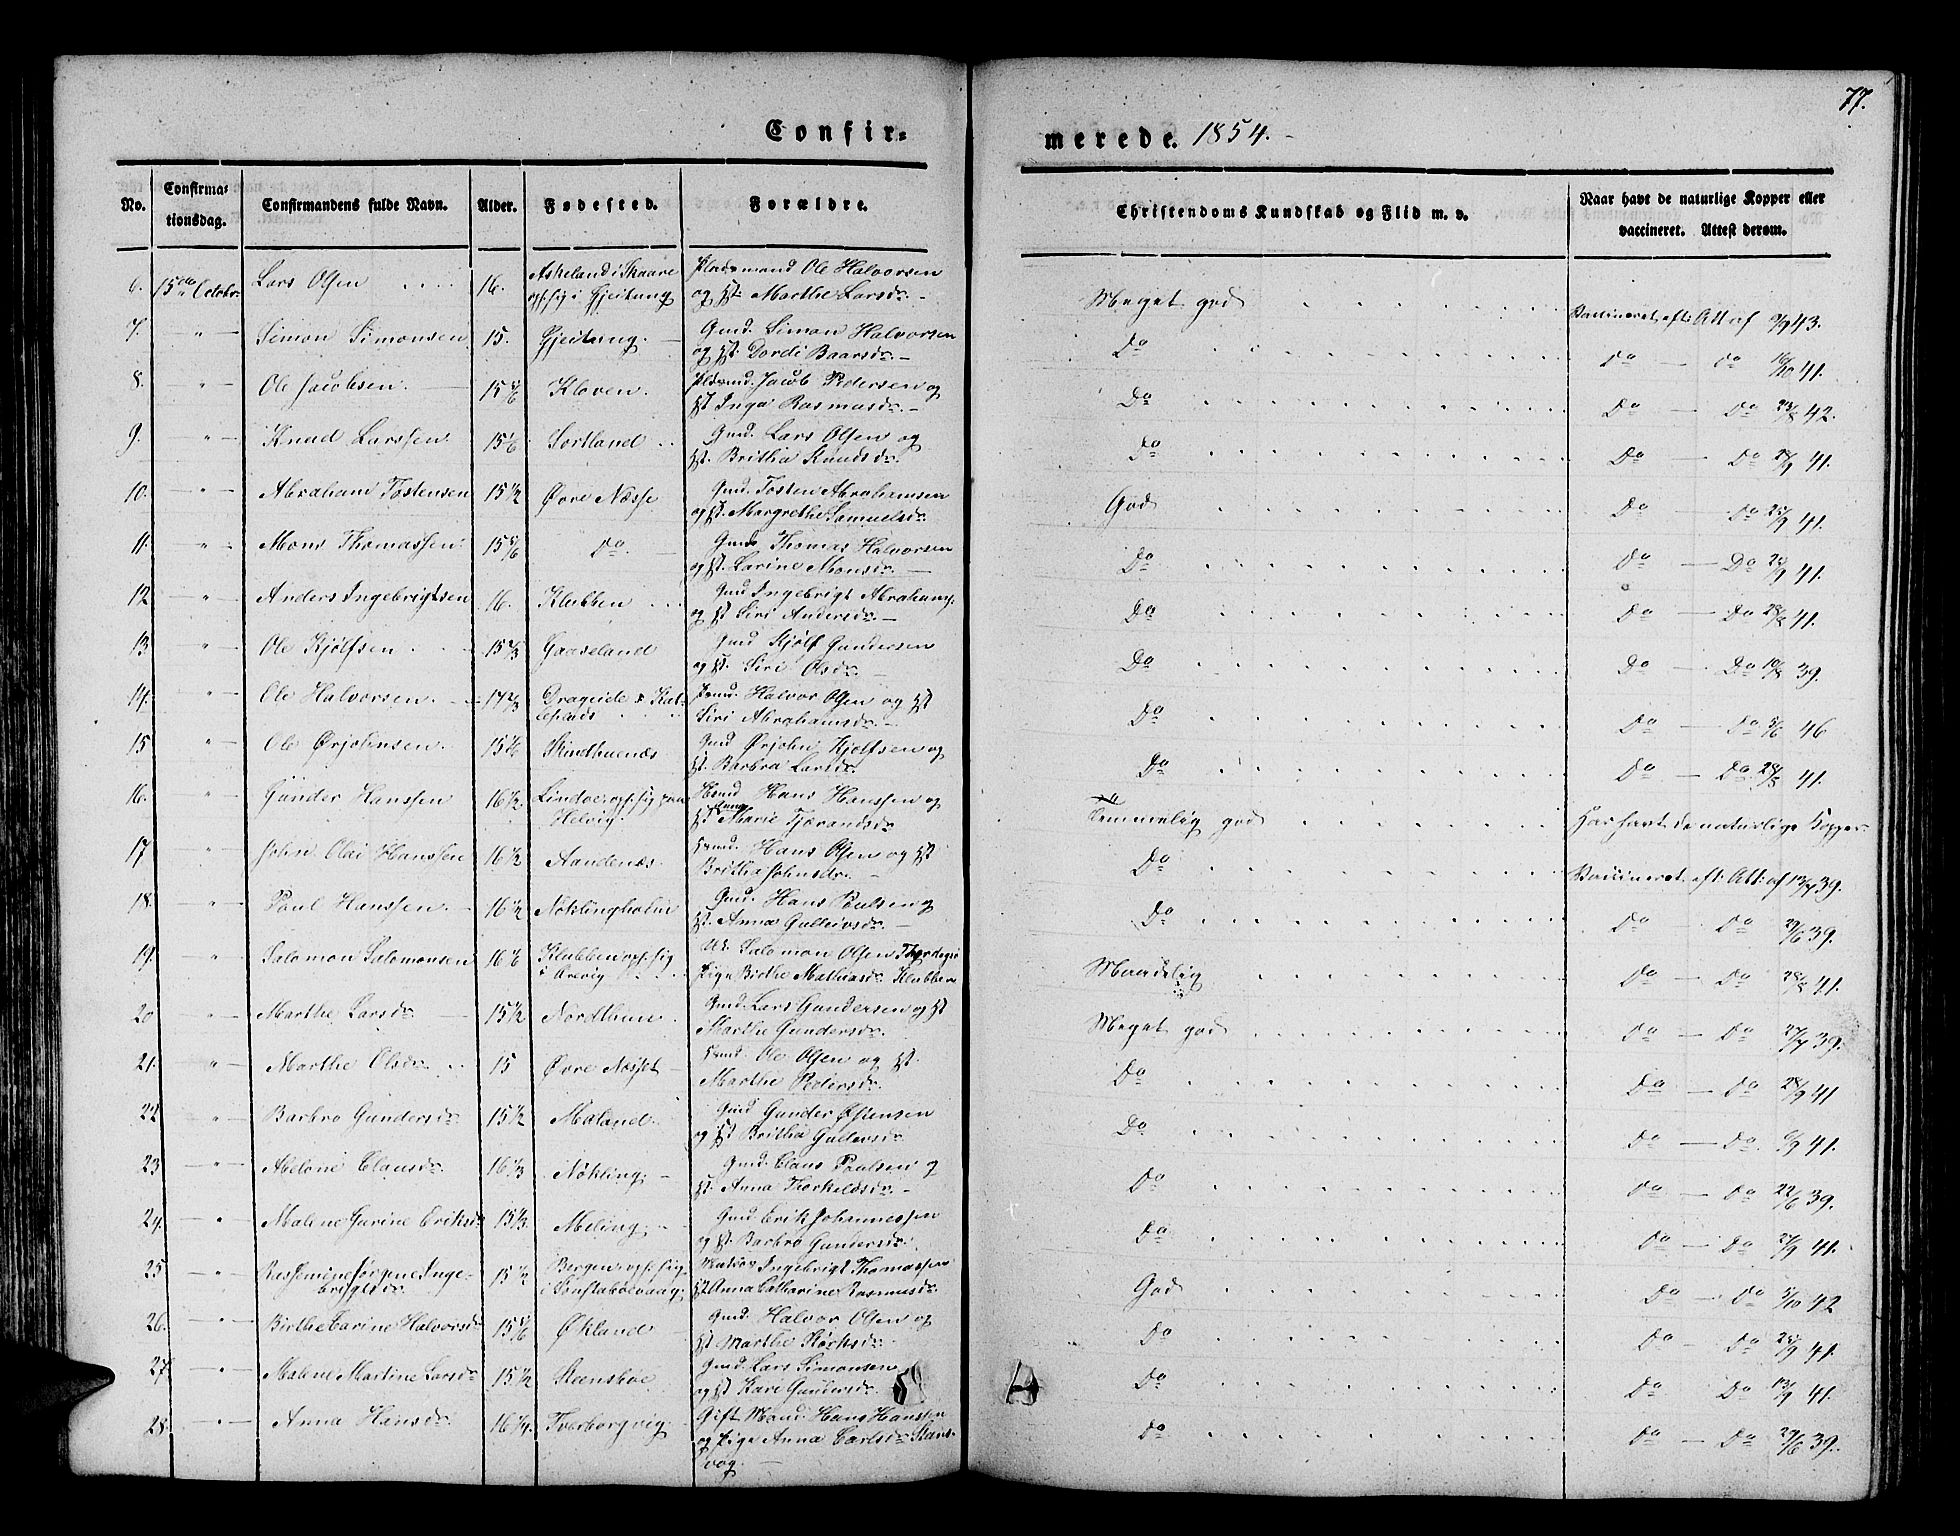 77.
Confir=
merede. 1854.
No. Confirma=tionsdag. Confirmandens fulde Navn. Alder. Fødested. Forældre.
Christendoms Kundskab og Flid m. v. Naar havt de naturlige Kopper eller vaccineret. Attest derom.
6. 15de Octobr. Lars Olsen 16. Askeland i Skaare Pladsmand Ole Halvorsen
ops. sig i Gjeitung og H. Marthe Larsdr.
Meget god Vaccineret eft. Att af 9/9 43.
7. " Simon Simonsen 15. Gjeitung Gmd. Simon Halvorsen
og H. Dordi Baarsdr.
Do Do Do 16/10 41.
8. " Ole Jacobsen 15 5/6 Kloven. Pladsmd. Jacob Pedersen og
H. Inga Rasmusdr.
Do Do Do 23/8 42.
9. " Knud Larssen 15 1/6 Sortland Gmd. Lars Olsen og
H. Britha Knudsdr.
Do Do Do 41.
10. " Abraham Tostensen 15 1/2 Øvre Næsse Gmd. Tosten Abrahamsen
og H. Margrethe Samuelsdr.
God Do Do 25/9 41.
11. " Mons Thomassen 15 5/6 Do. Gmd. Thomas Halvorsen
og H. Larine Monsdr.
Do Do Do 41.
12 " Anders Ingebrigtsen 16. Klubben Gmd Ingebrigt Abrahams.
og H Siri Andersdr.
Do Do Do 28/8 41.
13 " Ole Kjølfsen 15 2/3 Gaaseland Gmd Kjølf Gundersen
og H. Siri Olsdr.
Do Do Do 10/8 39.
14. " Ole Halvorsen 17 2/3 Drageide Halvor Olsen og H
Siri Abrahamsdr.
Do Do Do 5/6 46
15 " Ole Ørjohnsen 15 Skindbuenæs Gmd Ørjohn Kjølfsen og
H. Barbra Larsdr.
Do Do Do 28/8 41.
16. " Gunder Hanssen 16 1/2. Lindøe, ops. sig paa Hans Hanssen og
Helvig. H Anna Marie Tjærandsdr.
Temmelig god Har havt de naturlige Kopper
17 " John Olai Hanssen 16 1/2 Sandenæs Hans Olsen og H
Britha Johnsdr.
Do Vaccineret eft. Att. af 13/7 39.
18. " Paul Hanssen 16 1/2 Nøklingholm Gmd. Hans Paulsen og
H. Anna Gulleivsdr.
Do Do Do 29/6 39.
19. " Salomon Salomonsen 16 1/6 Klubben ops. sig Uk. Salomon Olsen
i Arevig Pige Birthe Mathiasdr Klubben
Maadelig Do Do 28/8 41.
20 " Marthe Larsdr. 15 1/2 Nordthun Gmd. Lars Gundersen og H
Marthe Gundersdr.
Meget god Do Do 27/7 39.
21. " Marthe Olsdr. 15 Øvre Næsset Ole Olsen og H.
Marthe Pedersdr.
Do Do Do 28/9 41
22 " Barbro Gundersdr 15 1/2 Maland. Gmd Gunder Østensen
og H Britha Gulleivsdr.
Do Do Do 6/9 41.
23 " Abelone Clausdr. 16 1/3 Nøkling. Gmd. Claus Paulsen og
H. Anna Thorkildsdr.
Do Do Do 22/6 39.
24. " Malene Gurine Eriksdr 15 1/3. Meling. Gmd Erik Johannessen
og H. Barbro Gundersdr.
Do Do Do 27/9 41.
25 " Rasmine Jørgine Inge= 15 1/2 Bergen, ops. sig Matros Ingebrigt Thomassen
brigtsdr. H Anna Cathrine Rasmusdr.
God Do Do 5/10 42
26. " Birthe Tarine Halvorsdr 15 5/6 Økland Gmd. Halvor Olsen og
H Marthe Størksdr.
Do Do Do 25/9 41.
27. " Malene Martine Larsdr 15 1/2 Steensbøe Gmd. Lars Simonsen
og H Kari Gundersdr.
Do Do Do 13/9 41.
28. " Anna Hansdr. 16 1/4. Tveborgvig Gift Mand Hans Hanssen
og Pige Anna Carlsdr
vog.
Do Do Do 29/6 39.